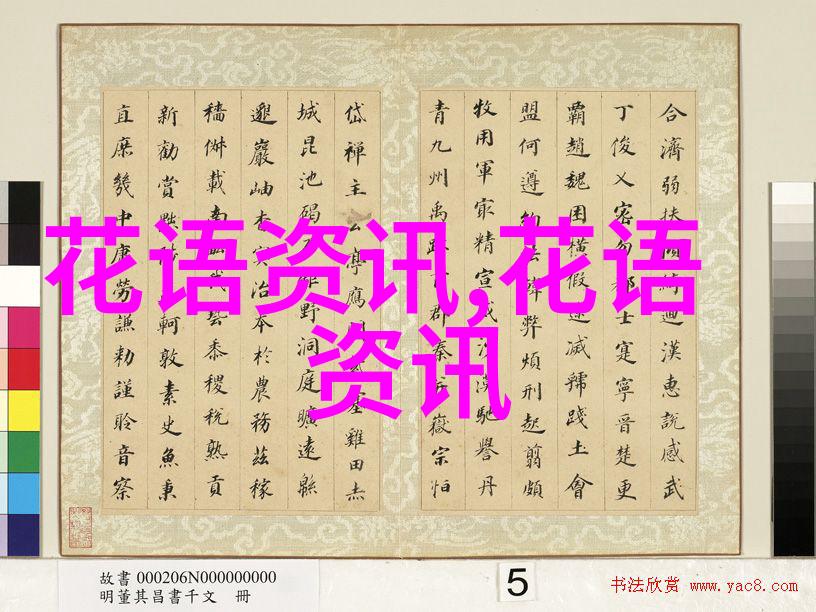 花语资讯,花语
资讯
合濟弱扶傾綺迴漢惠說感武
丁俊乂密勿士寔寧晉楚更
霸趙魏困橫假途滅虢踐土會
盟何遵約弊煩刑起翦頗
牧用軍最精宣威沙漠馳譽丹
青九州禹跡百郡秦并嶽宗恒
岱禪主云亭鴈塞雞田赤
城昆池碣野洞庭曠遠緜
邈巖岫杳冥治本於農務茲稼
穡俶載南畝我藝黍稷稅熟貢
新勸賞黜陟軻敦素史魚秉
直庶幾中庸勞謙勑謹聆音察
故書 000206N000000000
明董其昌書千文 冊
5
书法欣赏 www.yac8.com